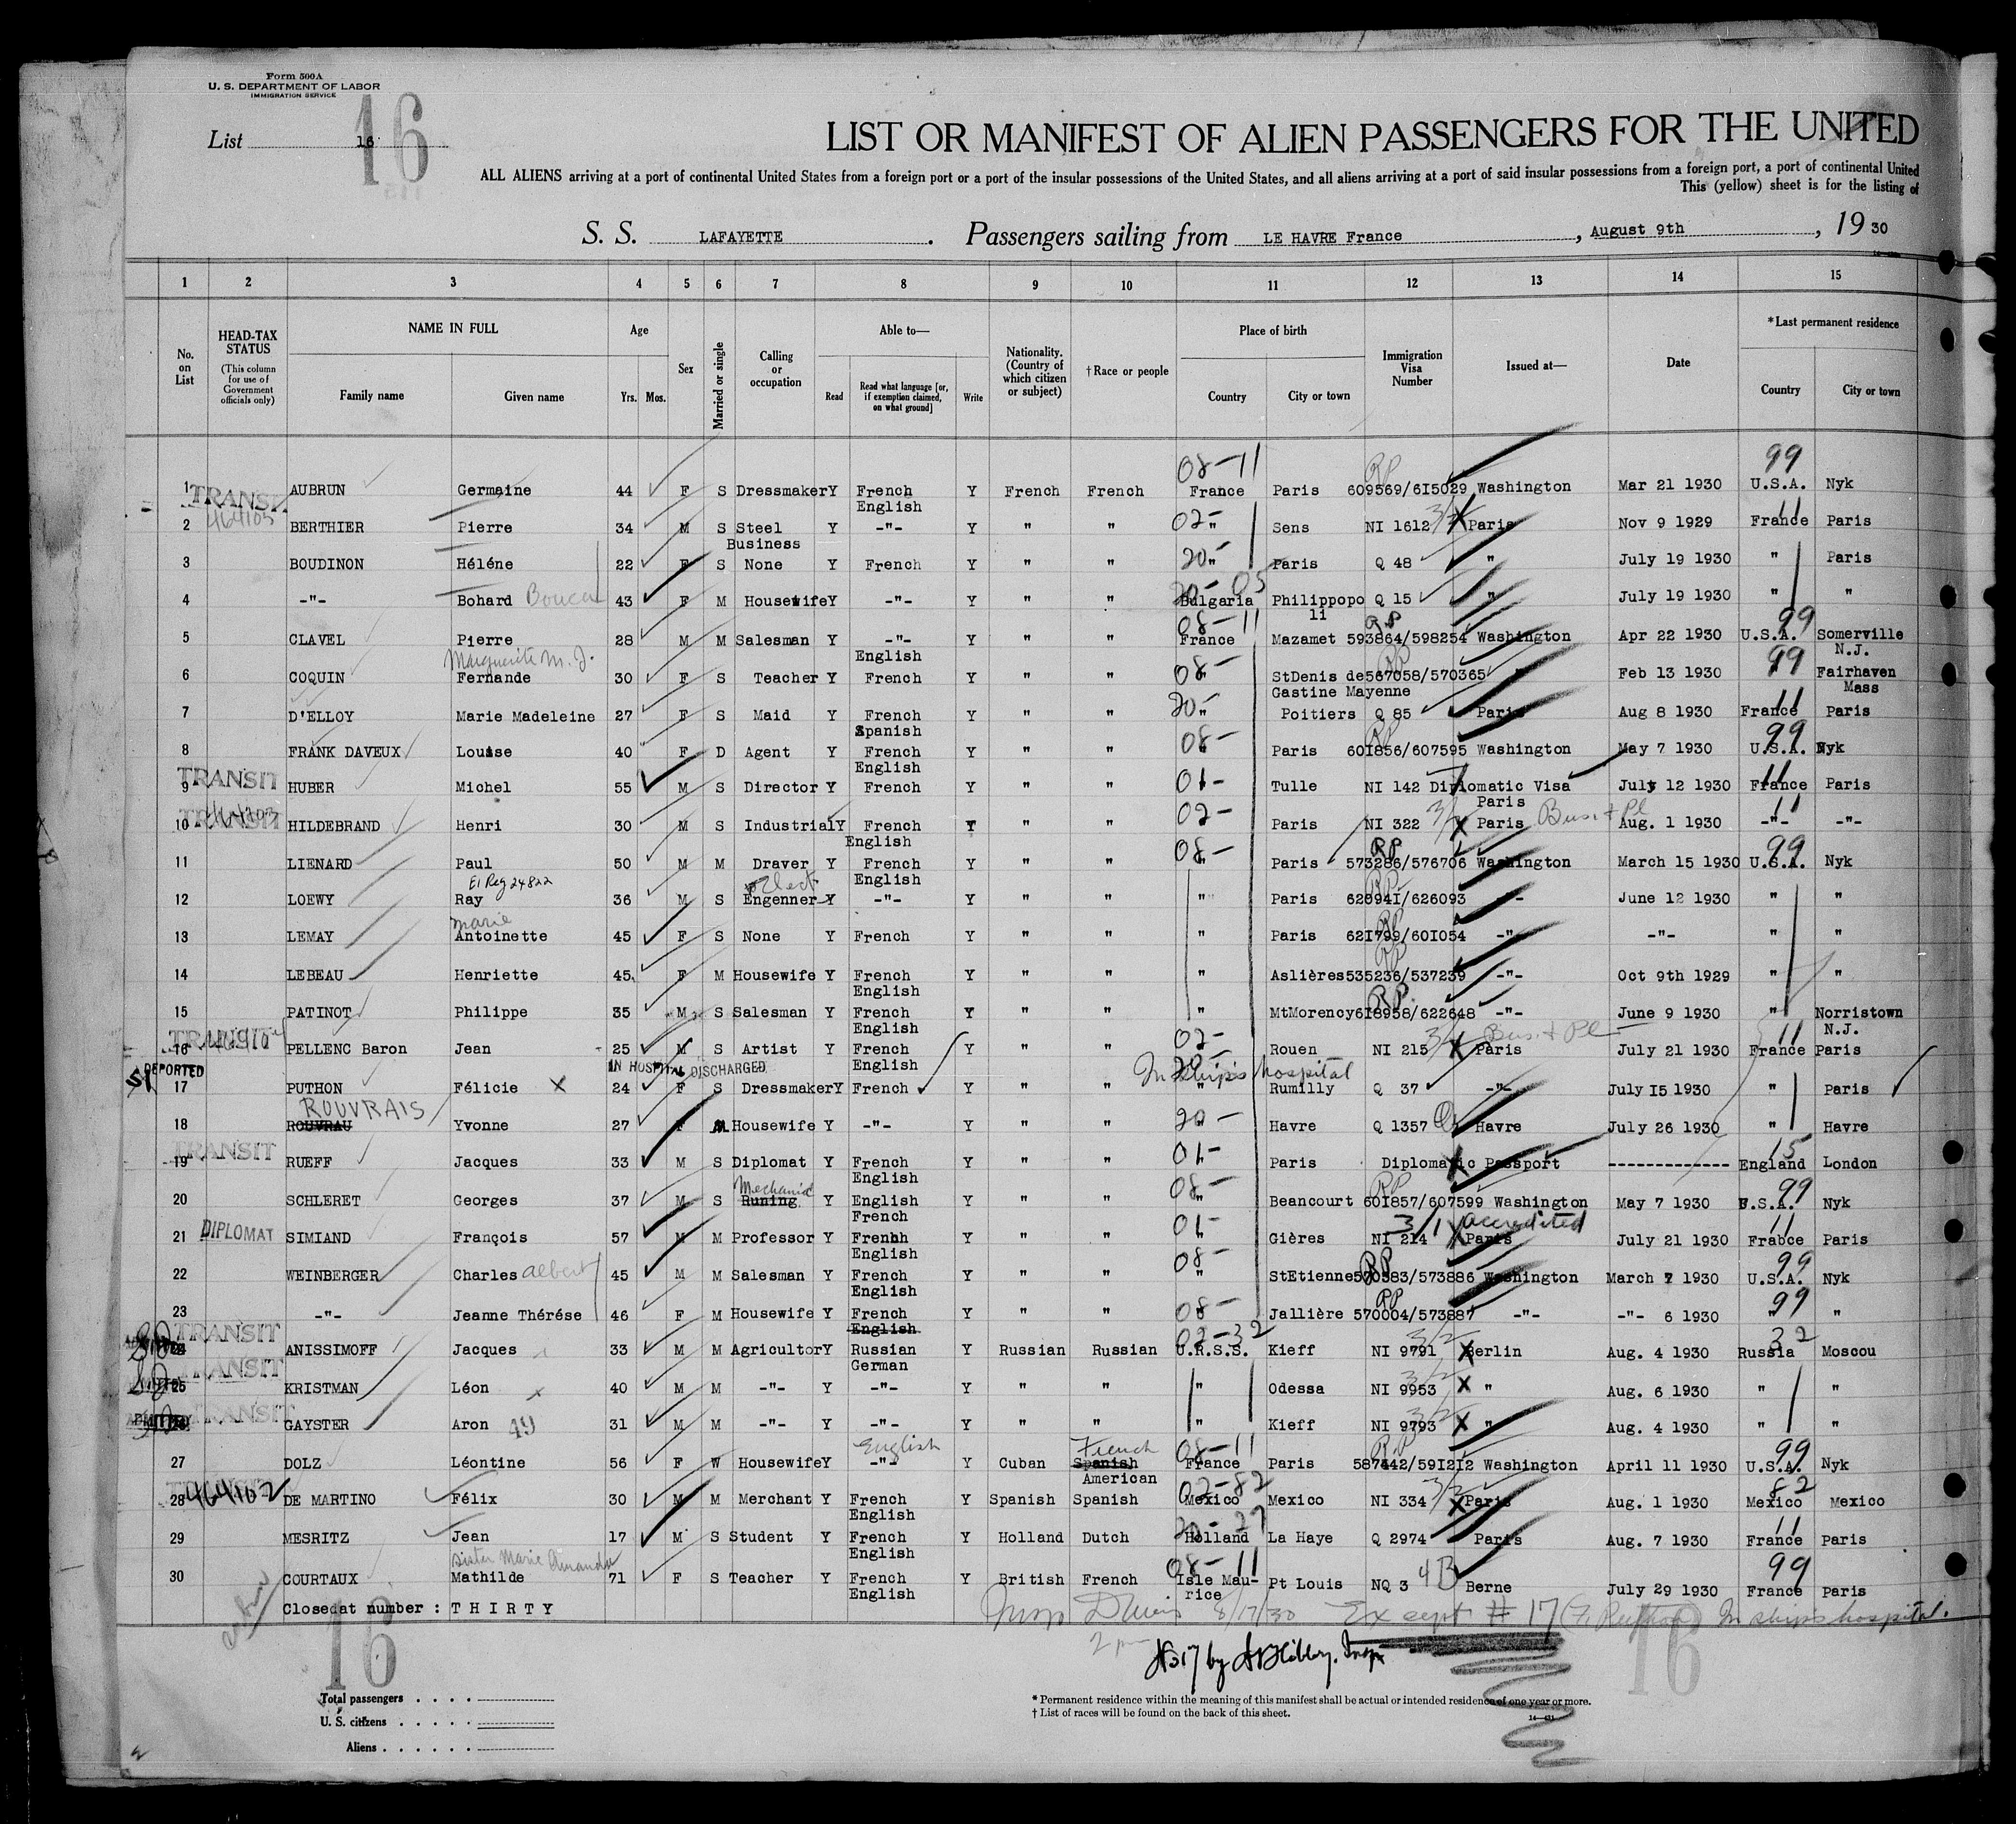 Form 500A
U. S. DEPARTMENT OF LABOR
IMMIGRATION SERVICE
List 16
16
LIST OR MANIFEST OF ALIEN PASSENGERS FOR THE UNITED
ALL ALIENS arriving at a port of continental United States from a foreign port or a port of the insular possessions of the United States, and all aliens arriving at a port of said insular possessions from a foreign port, a port of continental United
This (yellow) sheet is for the listing of
S. S. LAFAYETTE . Passengers sailing from LE HAVRE France , August 9th , 19 30
1 2 3 4 5 6 7 8 9 10 11 12 13 14 15
No. on List
HEAD-TAX STATUS (This column for use of Government officials only)
NAME IN FULL Family name Given name
Age Yrs. Mos.
Sex
Married or single
Calling or occupation
Able to— Read Read what language [or, if exemption claimed, on what ground] Write
Nationality. (Country of which citizen or subject)
†Race or people
Place of birth Country City or town
Immigration Visa Number
Issued at—
Date
*Last permanent residence Country City or town
08-11 RP 99
1 TRANSIT AUBRUN Germaine 44 F S Dressmaker Y French Y French French France Paris 609569/6I5029 Washington Mar 21 1930 U.S.A. Nyk
English
2 464105 BERTHIER Pierre 34 M S Steel Y -"- Y " " 02- " Sens NI 1612 3/2 X Paris Nov 9 1929 11 France Paris
Business
3 BOUDINON Héléne 22 F S None Y French Y " " 20- " Paris Q 48 " July 19 1930 " Paris
4 -"- Bohard 43 F M Housewife Y -"- Y " " 20-05 Bulgaria Philippopo Q 15 " July 19 1930 " "
li
5 CLAVEL Pierre 28 M M Salesman Y -"- Y " " 08-11 France Mazamet RP 593864/598254 Washington Apr 22 1930 99 U.S.A. Somerville
English N.J.
Marguerite M. J.
6 COQUIN Fernande 30 F S Teacher Y French Y " " 08- " StDenis de RP 567058/570365 " Feb 13 1930 99 " Fairhaven
Gastine Mayenne Mass
7 D'ELLOY Marie Madeleine 27 F S Maid Y French Y " " 20- " Poitiers Q 85 Paris Aug 8 1930 11 France Paris
Spanish
8 FRANK DAVEUX Louise 40 F D Agent Y French Y " " 08- " Paris RP 60I856/607595 Washington May 7 1930 99 U.S.A. Nyk
English
9 TRANSIT HUBER Michel 55 M S Director Y French Y " " 01- Tulle NI 142 Diplomatic Visa July 12 1930 11 France Paris
Paris
10 TRANSIT 464103 HILDEBRAND Henri 30 M S Industrial Y French Y " " 02- Paris NI 322 3/2 X Paris Bus. + Pl Aug. 1 1930 11 -"- -"-
English
11 LIENARD Paul 50 M M Draver Y French Y " " 08- " Paris RP 573286/576706 Washington March 15 1930 99 U.S.A. Nyk
El Reg 24822 English
Elect
12 LOEWY Ray 36 M S Engenner Y -"- Y " " " Paris RP 62094I/626093 -"- June 12 1930 " "
Marie
13 LEMAY Antoinette 45 F S None Y French Y " " " Paris RP 62I799/60I054 -"- -"- " "
14 LEBEAU Henriette 45 F M Housewife Y French Y " " " Aslières RP 535236/537239 -"- Oct 9th 1929 " "
English
15 PATINOT Philippe 35 M S Salesman Y French Y " " " MtMorency RP 6I8958/622648 -"- June 9 1930 " Norristown
English N.J.
16 TRANSIT PELLENC Baron Jean 25 M S Artist Y French Y " " 02- Rouen NI 215 3/2 X Paris Bus. + Pl July 21 1930 11 France Paris
IN HOSPITAL DISCHARGED English In ship's hospital
17 DEPORTED PUTHON Félicie X 24 F S Dressmaker Y French Y " " 20- " Rumilly Q 37 -"- July I5 1930 " Paris
ROUVRAIS
18 ROUVRAU Yvonne 27 F M Housewife Y -"- Y " " 20- " Havre Q 1357 Havre July 26 1930 " Havre
19 TRANSIT RUEFF Jacques 33 M S Diplomat Y French Y " " 01- Paris Diplomatic Passport ------------- 15 England London
English
Mechanic
20 SCHLERET Georges 37 M S Runing Y English Y " " 08- " Beancourt RP 60I857/607599 Washington May 7 1930 99 U.S.A. Nyk
French
21 DIPLOMAT SIMIAND François 57 M M Professor Y Frenhh Y " " 01- Gières NI 214 3/1 X accredited Paris July 21 1930 11 Frabce Paris
English
22 WEINBERGER Charles Albert 45 M M Salesman Y French Y " " 08- " StEtienne RP 570383/573886 Washington March 7 1930 99 U.S.A. Nyk
English
23 -"- Jeanne Thérése 46 F M Housewife Y French Y " " 08- " Jallière RP 570004/573887 -"- -"- 6 1930 99 " "
English
24 TRANSIT ANISSIMOFF Jacques 33 M M Agricultor Y Russian Y Russian Russian 02-32 U.R.S.S. Kieff NI 9791 3/2 X Berlin Aug. 4 1930 32 Russia Moscou
German
25 TRANSIT KRISTMAN Léon 40 M M -"- Y -"- Y " " " Odessa NI 9953 3/2 X " Aug. 6 1930 " "
26 TRANSIT GAYSTER Aron 49 31 M M -"- Y -"- Y " " " Kieff NI 9793 3/2 X " Aug. 4 1930 " "
English French
27 DOLZ Léontine 56 F W Housewife Y -"- Y Cuban Spanish 08-11 France Paris RP 587442/59I2I2 Washington April 11 1930 99 U.S.A. Nyk
American
28 464102 DE MARTINO Félix 30 M M Merchant Y French Y Spanish Spanish 02-82 Mexico Mexico NI 334 3/2 X Paris Aug. 1 1930 82 Mexico Mexico
English
29 MESRITZ Jean 17 M S Student Y French Y Holland Dutch 20-27 Holland La Haye Q 2974 Paris Aug. 7 1930 11 France Paris
English
Sister Marie Amanda
30 COURTAUX Mathilde 71 F S Teacher Y French Y British French 08-11 Isle Mau- Pt Louis NQ 3 4B Berne July 29 1930 99 France Paris
English rice
Closedat number : T H I R T Y
Insp 8/17/30 Except # 17 In ship's hospital.
2 pm
16
16
Total passengers . . . .
U. S. citizens . . . . .
Aliens . . . . . .
* Permanent residence within the meaning of this manifest shall be actual or intended residence of one year or more.
† List of races will be found on the back of this sheet.